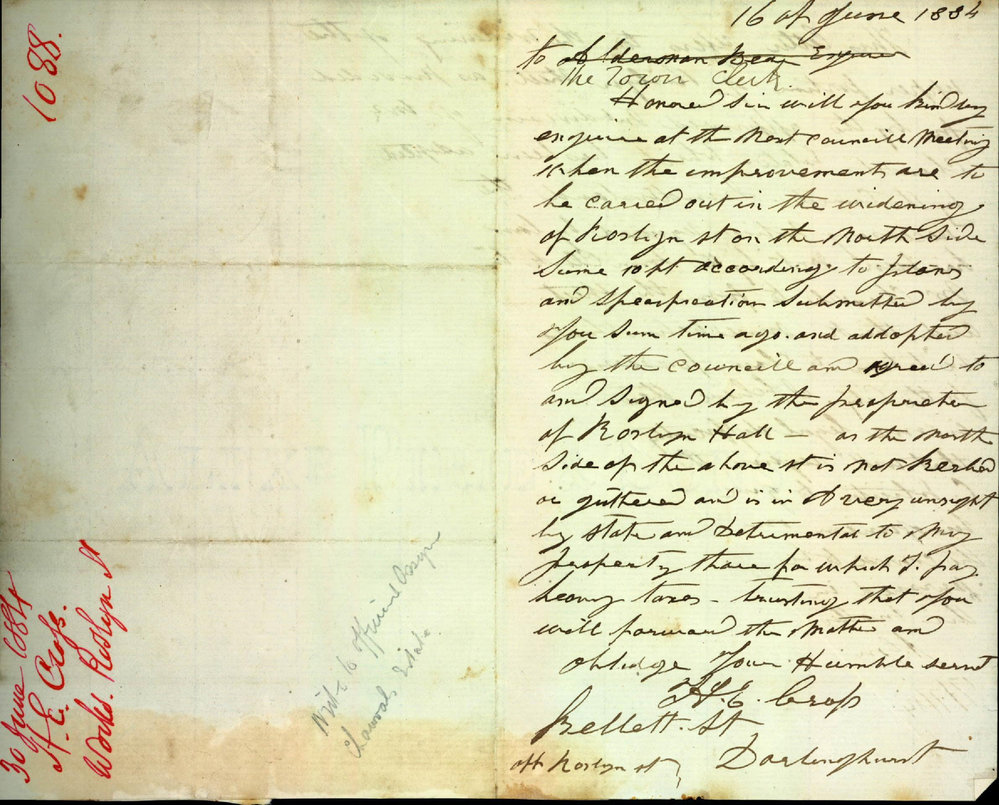 1088.
30 June 1884
H. E. Cross.
Works. Roslyn St
Write to Official Assignee
Estate
16 of June 1884
to Alderman Esquire
The Town Clerk
Honored Sir will you kindly
enquire at the Next Councill Meeting
when the improvement are to
be carried out in the widening
of Roslyn st on the North Side
Some 10 ft according to plans
and Submitted by
you Sum time ago. and addopted
by the Councill and agree'd to
and Signed by the proprieter
of Roslyn Hall — as the North
Side of the above st is not Kerbed
or guttered and is in A very unsight
ly state and Detremental to My
property thare for which I pay
heavy taxes – trusting that you
will forward the Matter and
oblidge Your Humble servt
H. E. Cross
Kellett. St
off Roslyn st Darlinghurst